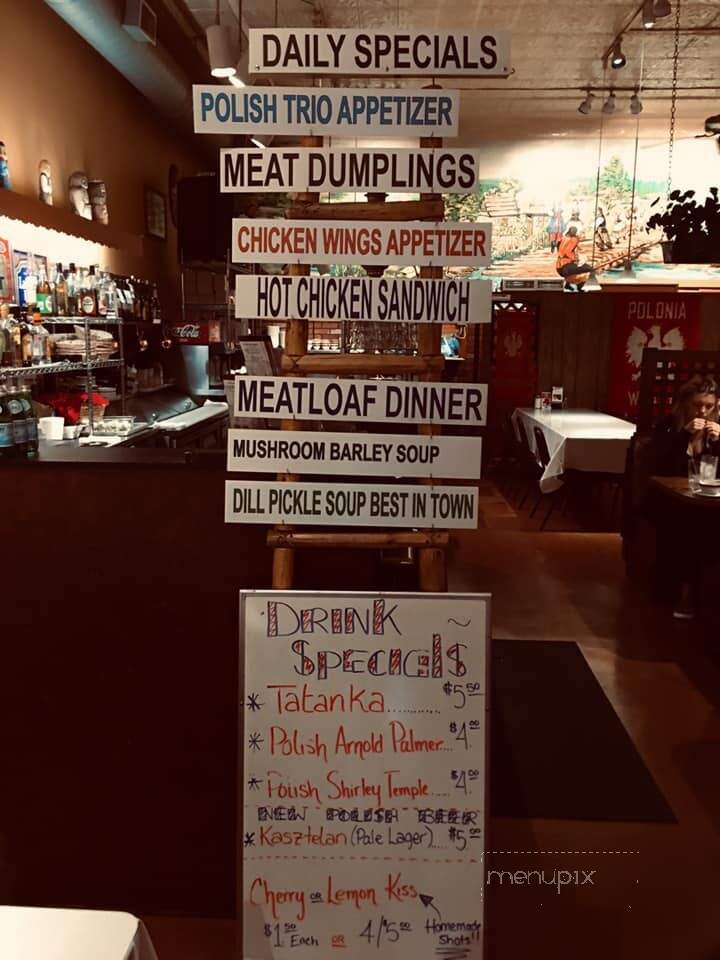 DAILY SPECIALS
POLISH TRIO APPETIZER
MEAT DUMPLINGS
CHICKEN WINGS APPETIZER
HOT CHICKEN SANDWICH
MEATLOAF DINNER
MUSHROOM BARLEY SOUP
DILL PICKLE SOUP BEST IN TOWN
Coca-Cola
POLONIA
DRINK ~
SPECIALS
* Tatanka.......... $5.50
* Polish Arnold Palmer... $4.00
* Polish Shirley Temple..... $4.00
NEW POLISH BEER
* Kasztelan (Pale Lager).... $5.00
Cherry OR Lemon Kiss
$1.50 Each OR 4/$5.00 Homemade Shots!!
menupix